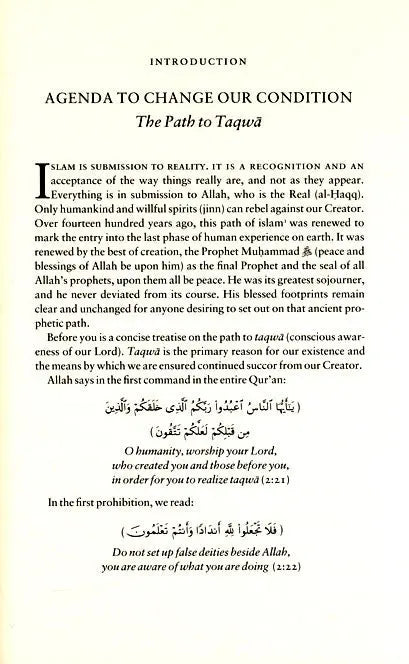 INTRODUCTION
AGENDA TO CHANGE OUR CONDITION
The Path to Taqwā
ISLAM IS SUBMISSION TO REALITY. IT IS A RECOGNITION AND AN
acceptance of the way things really are, and not as they appear.
Everything is in submission to Allah, who is the Real (al-Ḥaqq).
Only humankind and willful spirits (jinn) can rebel against our Creator.
Over fourteen hundred years ago, this path of islam¹ was renewed to
mark the entry into the last phase of human experience on earth. It was
renewed by the best of creation, the Prophet Muḥammad ﷺ (peace and
blessings of Allah be upon him) as the final Prophet and the seal of all
Allah's prophets, upon them all be peace. He was its greatest sojourner,
and he never deviated from its course. His blessed footprints remain
clear and unchanged for anyone desiring to set out on that ancient pro-
phetic path.
Before you is a concise treatise on the path to taqwā (conscious awar-
eness of our Lord). Taqwā is the primary reason for our existence and
the means by which we are ensured continued succor from our Creator.
Allah says in the first command in the entire Qur'an:
﴿ يَٰٓأَيُّهَا ٱلنَّاسُ ٱعْبُدُوا۟ رَبَّكُمُ ٱلَّذِى خَلَقَكُمْ وَٱلَّذِينَ
مِن قَبْلِكُمْ لَعَلَّكُمْ تَتَّقُونَ ﴾
O humanity, worship your Lord,
who created you and those before you,
in order for you to realize taqwā (2:21)
In the first prohibition, we read:
﴿ فَلَا تَجْعَلُوا۟ لِلَّهِ أَندَادًا وَأَنتُمْ تَعْلَمُونَ ﴾
Do not set up false deities beside Allah,
you are aware of what you are doing (2:22)